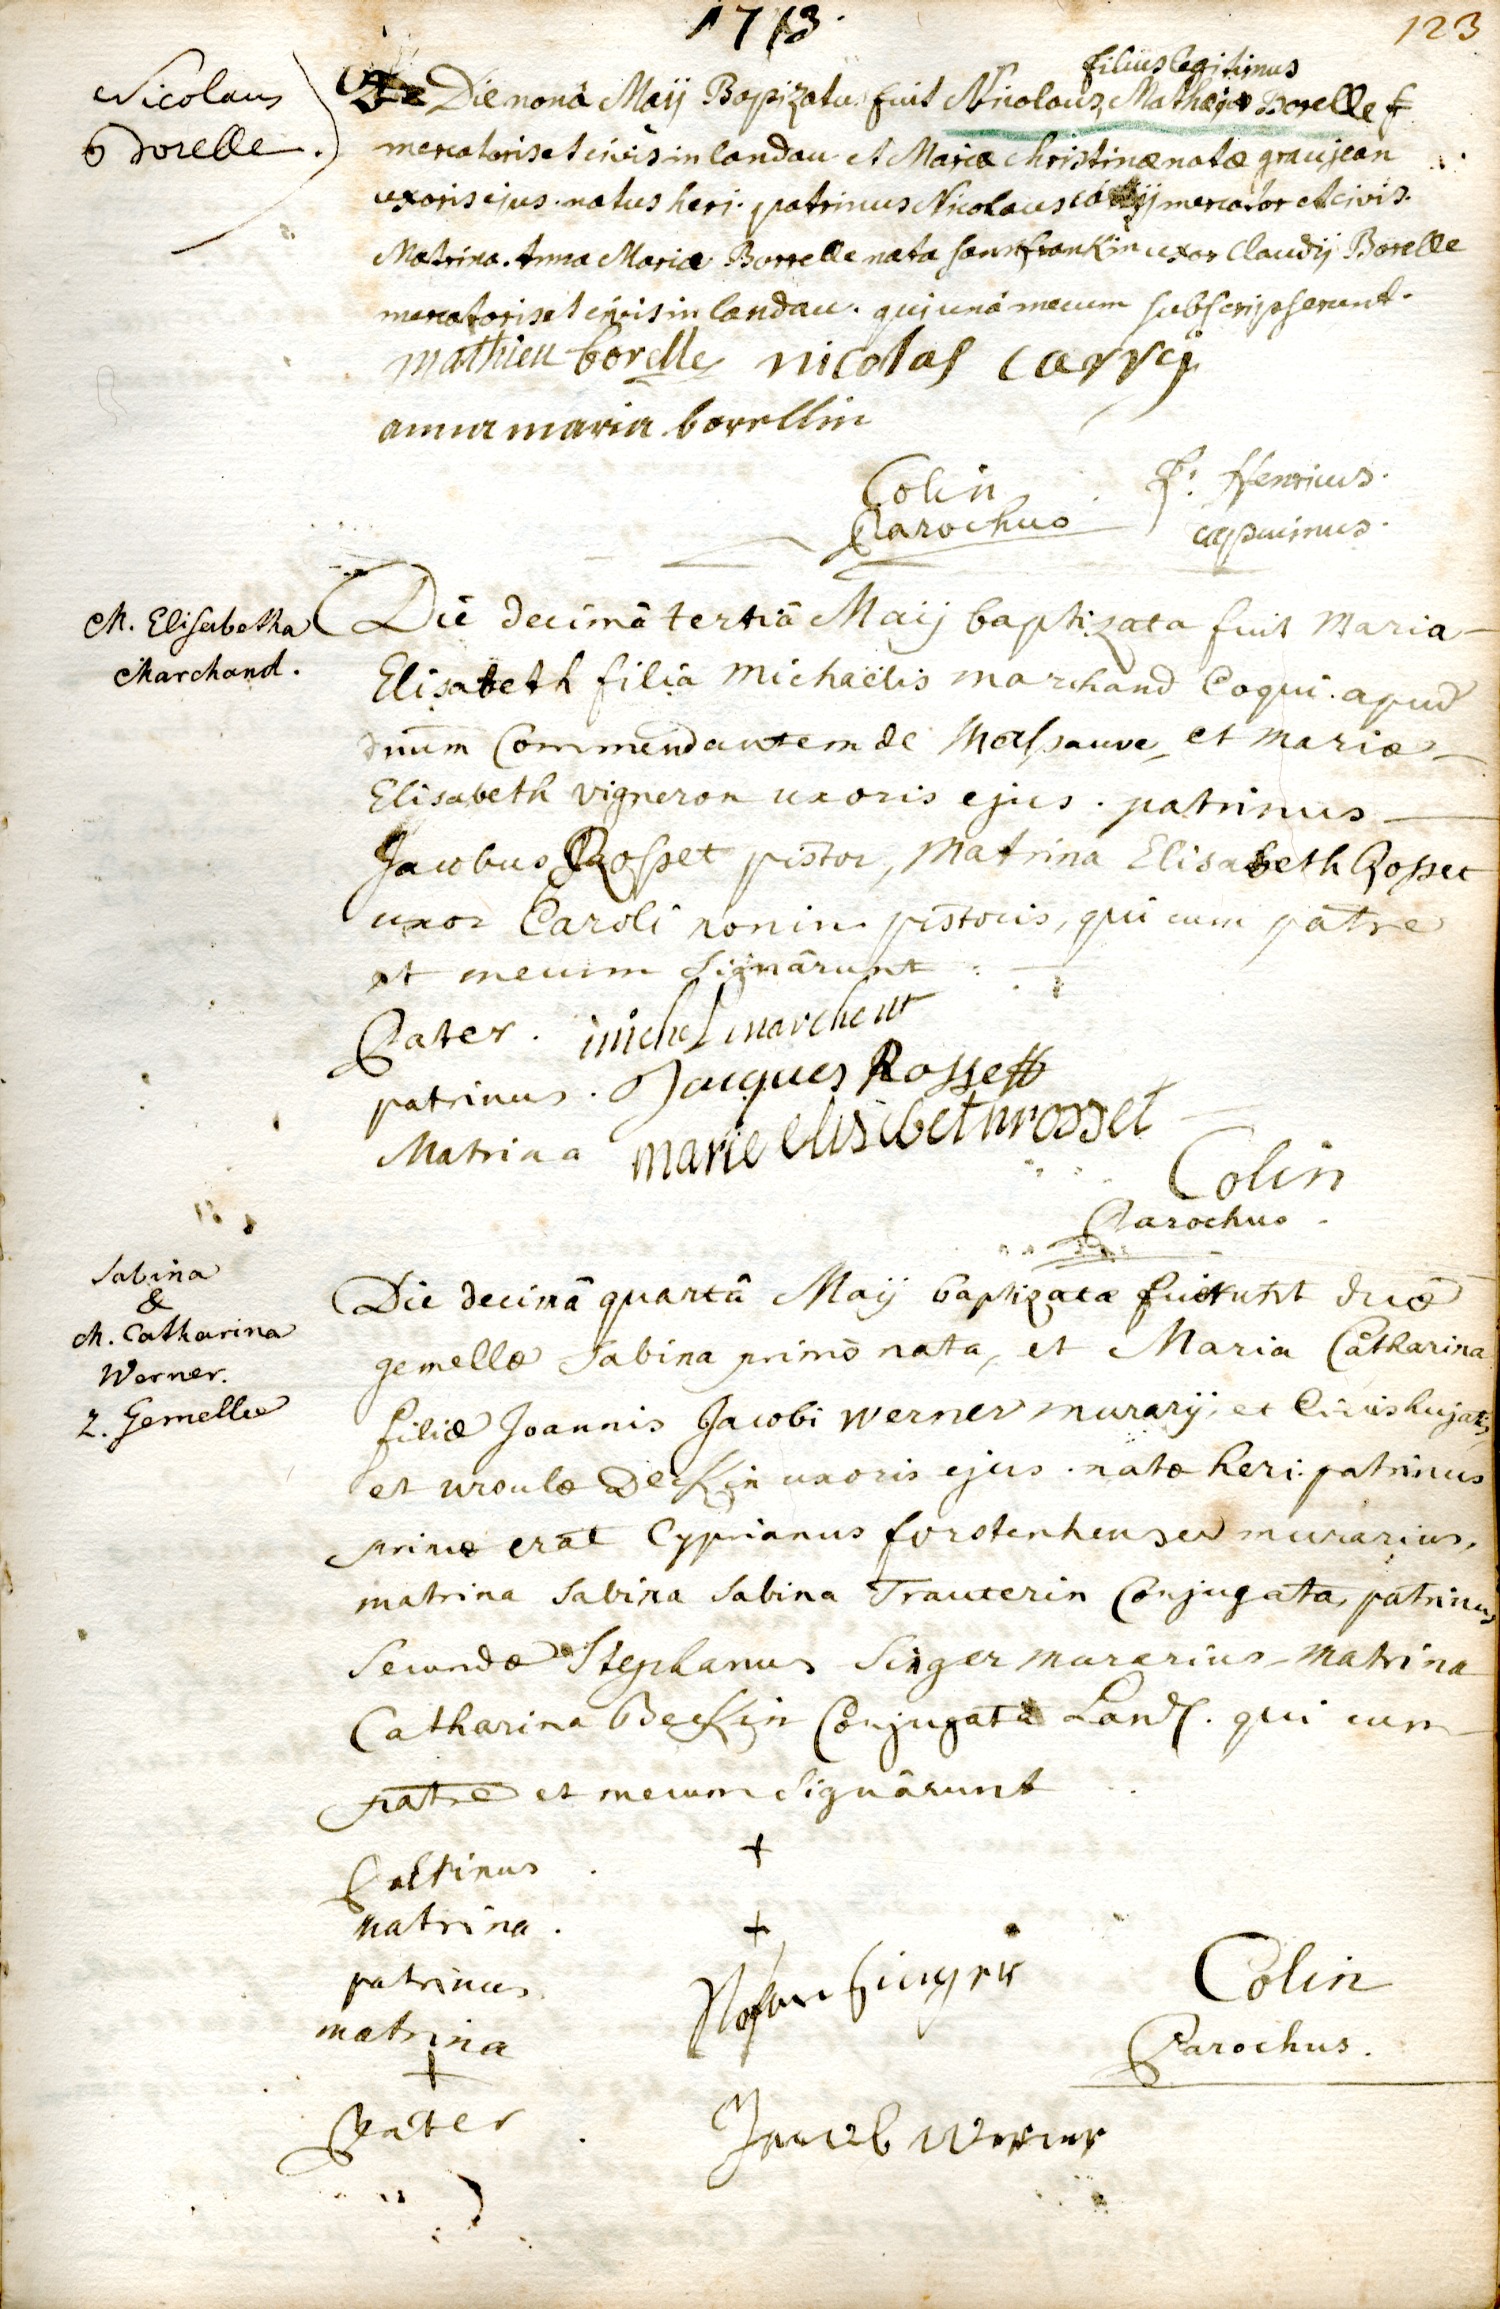 1713.
123
Nicolaus
Borelle.
filius legitimus
Die nonâ Maij Bapizatus fuit Nicolaus, Mathæi Borelle
mercatoris et civis in landau et Mariæ christinæ natæ graujean
uxoris ejus. natus heri. patrinus Nicolaus mercator et civis.
Matrina. Anna Maria Borrelle nata uxor Claudij Borelle
mercatoris et civis in landau. qui unâ mecum subscripserunt.
mathieu borelle nicolas carrij
anna maria borellin
Colin
Parochus
f. Henricus.
capucinus.
M. Elisabetha
Marchand.
Die decimâ tertiâ Maij baptizata fuit Maria
Elisabeth filia Michaëlis marchand Coqui apud
dnum Commendantem de Malsauve, et mariæ
Elisabeth vigneron uxoris ejus. patrinus
Jacobus Rosset pistor, Matrina Elisabeth Rosset
uxor Caroli nonin pistoris, qui cum patre
et mecum signârunt.
Pater. michel marchent
patrinus. Jacques Rossett
Matrina marie elisebeth rosset
Colin
Parochus.
Sabina
&
M. Catharina
Werner.
2. Gemellæ
Die decimâ quartâ Maij baptizatæ fuerunt duæ
gemellæ Sabina primò nata, et Maria Catharina
filiæ Joannis Jacobi Werner murarij, et Civis hujatis,
et ursulæ Deckin uxoris ejus. natæ heri. patrinus
primæ erat Cyprianus forstenheuser murarius,
matrina Sabina Sabina Trauterin Conjugata, patrinus
Secundæ Stephanus Singer murarius. Matrina
Catharina Beckin Conjugata Land. qui cum
patre et mecum signârunt
Patrinus. +
matrina. +
patrinus singer
matrina
+
Colin
Parochus.
Pater. Jacob Werner